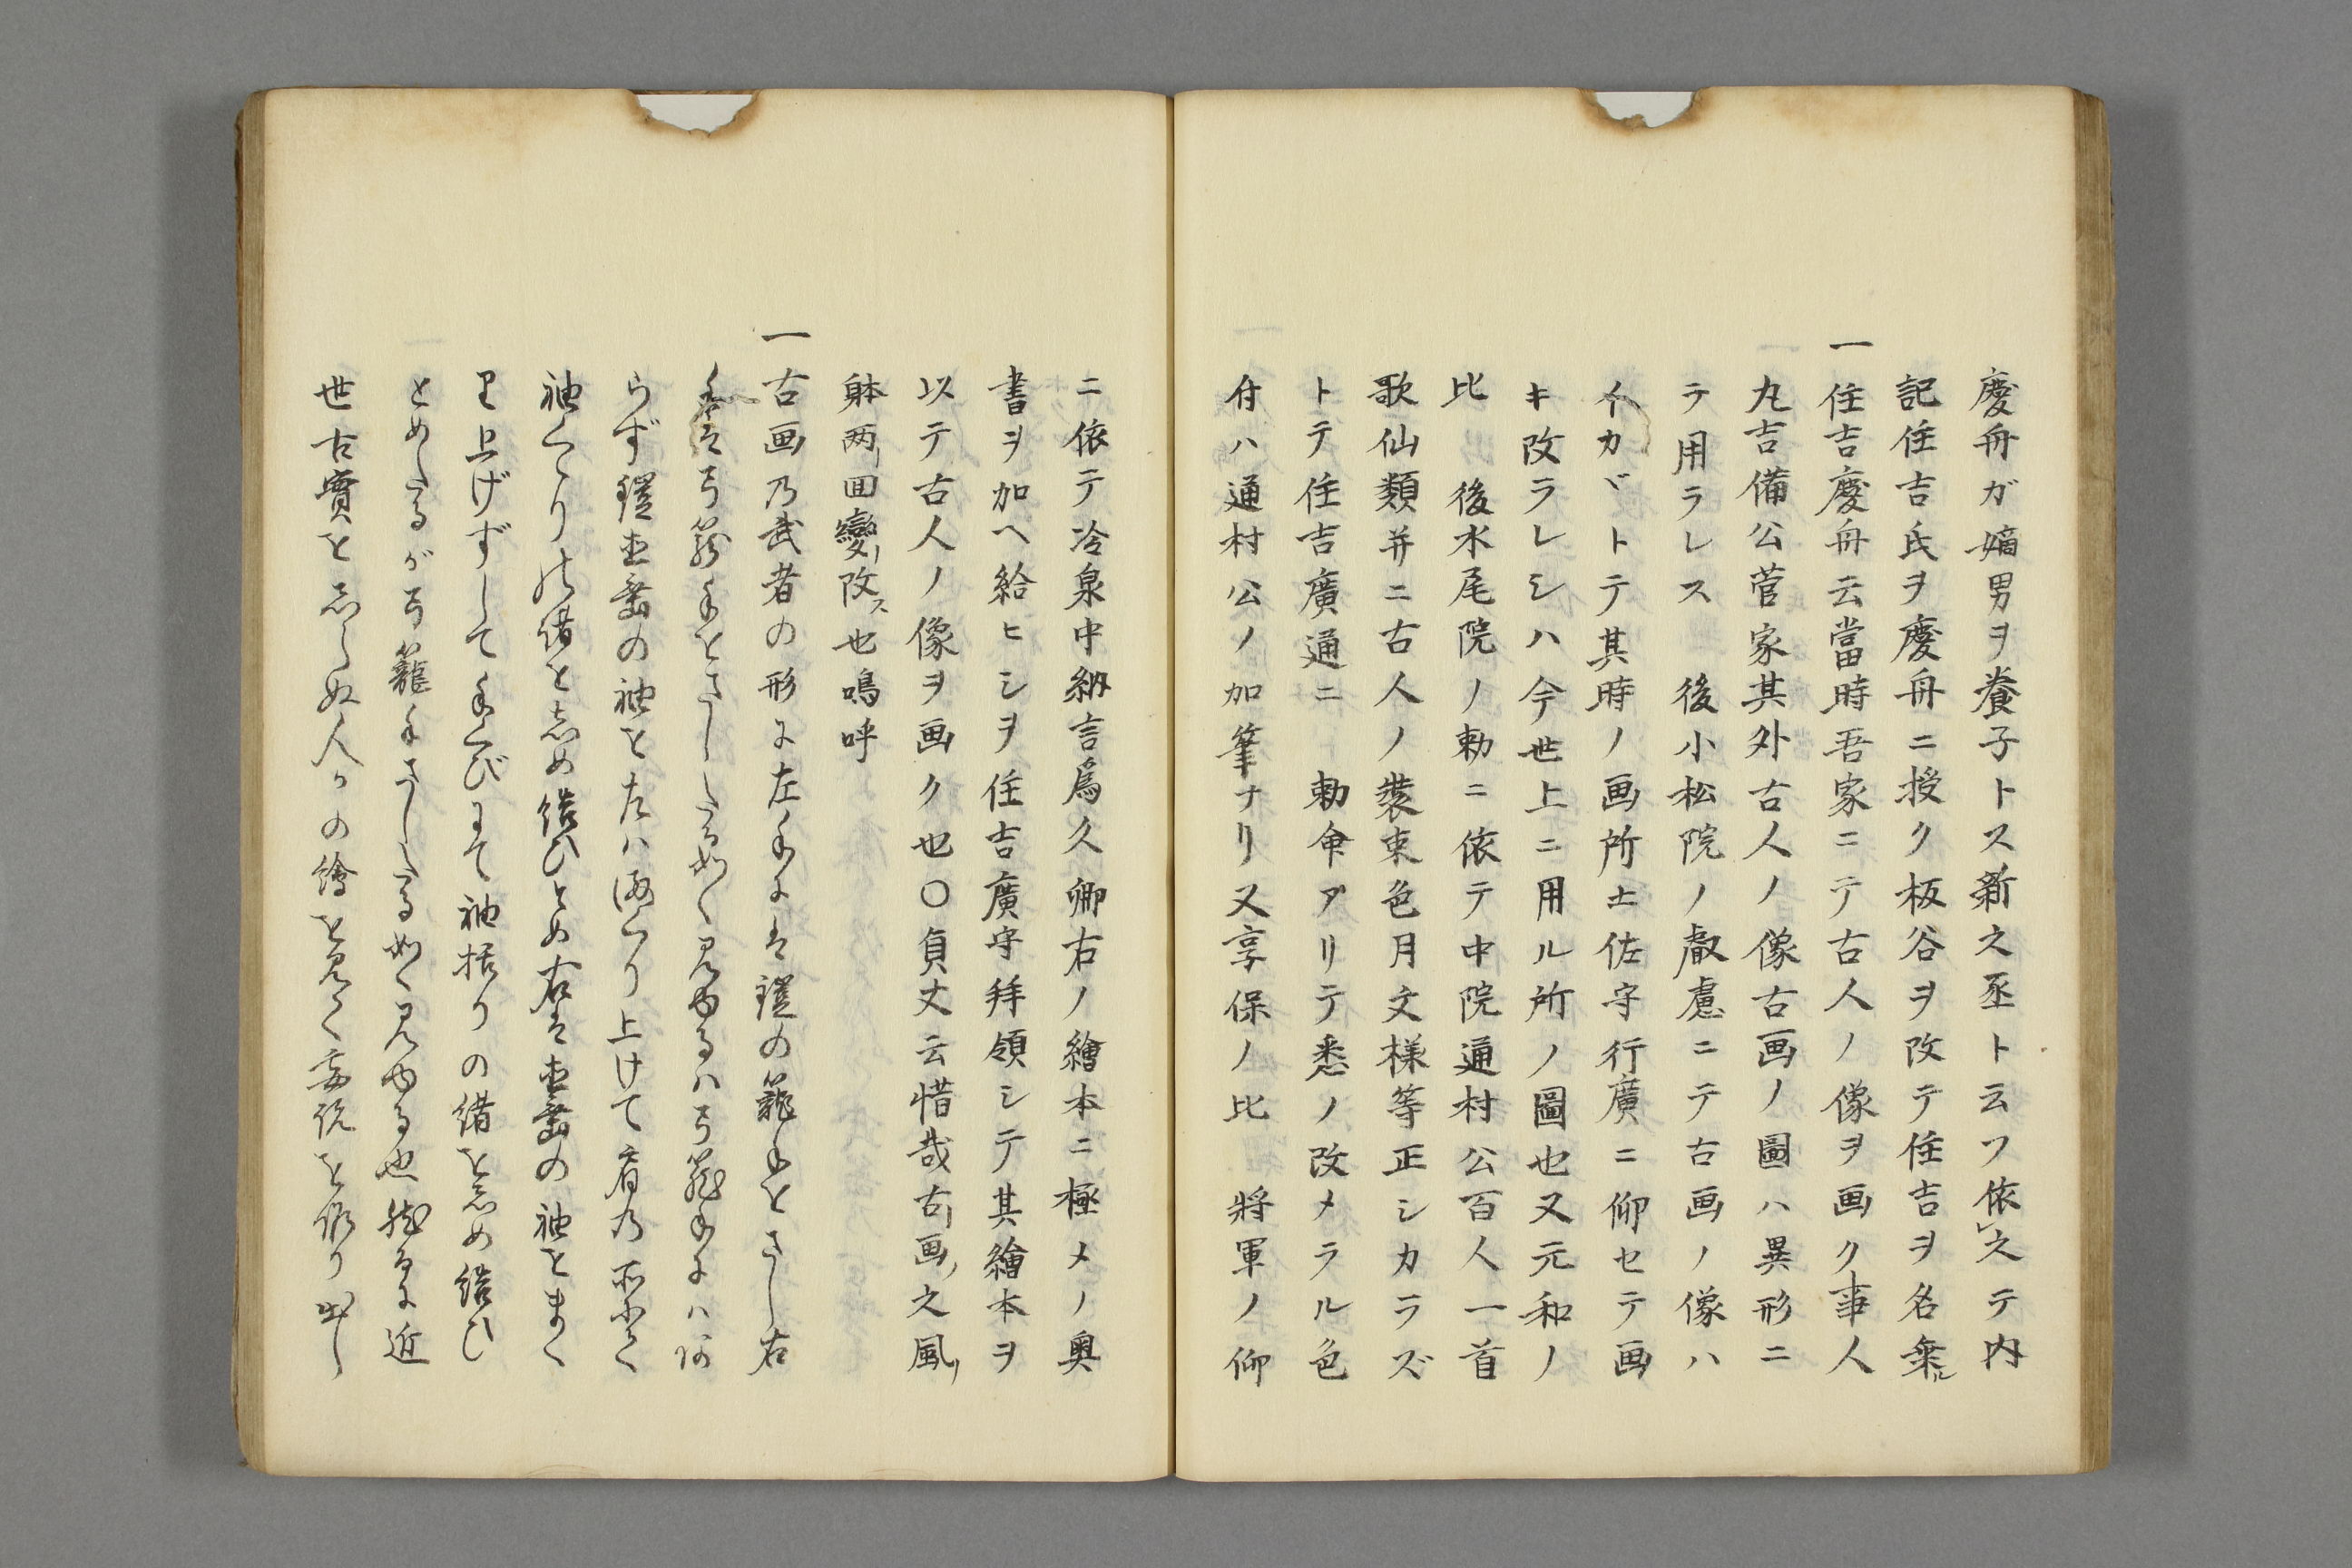 慶舟ガ嫡男ヲ養子トス新之丞ト云フ依レ之テ内
記住吉氏ヲ慶舟ニ授ク板谷ヲ改テ住吉ヲ名乗ル
一住吉慶舟云當時吾家ニテ古人ノ像ヲ画ク事人
丸吉備公菅家其外古人ノ像古画ノ圖ハ異形ニ
テ用ラレス 後小松院ノ叡慮ニテ古画ノ像ハ
イカヾトテ其時ノ画所土佐守行廣ニ仰セテ画
キ改ラレシハ今世上ニ用ル所ノ圖也又元和ノ
比 後水尾院ノ勅ニ依テ中院通村公百人一首
歌仙類并ニ古人ノ裝束色月文様等正シカラズ
トテ住吉廣通ニ 勅命アリテ悉ノ改メラル色
付ハ通村公ノ加筆ナリ又享保ノ比 將軍ノ仰
ニ依テ冷泉中納言爲久卿右ノ繪本ニ極メノ奥
書ヲ加ヘ給ヒシヲ住吉廣守拜領シテ其繪本ヲ
以テ古人ノ像ヲ画ク也〇貞丈云惜哉古画之風
躰两回變改ス也嗚呼
一古画乃武者の形に左手にハ鎧の籠手をさし右
手にハ弓籠手をさしたる如く見ゆるハ弓籠手にハ
らず鎧直垂の袖を左ハ上けて肩乃
袖くゝりの緒をしめ結ひとめ右ハ直垂の袖をまく
り上げずして手くびにて袖括りの緒をしめ結ひ
とめたるが弓籠手さしたる如く見ゆる也然るに近
世古實をしらぬ人の繪を見て妄説を作り出し